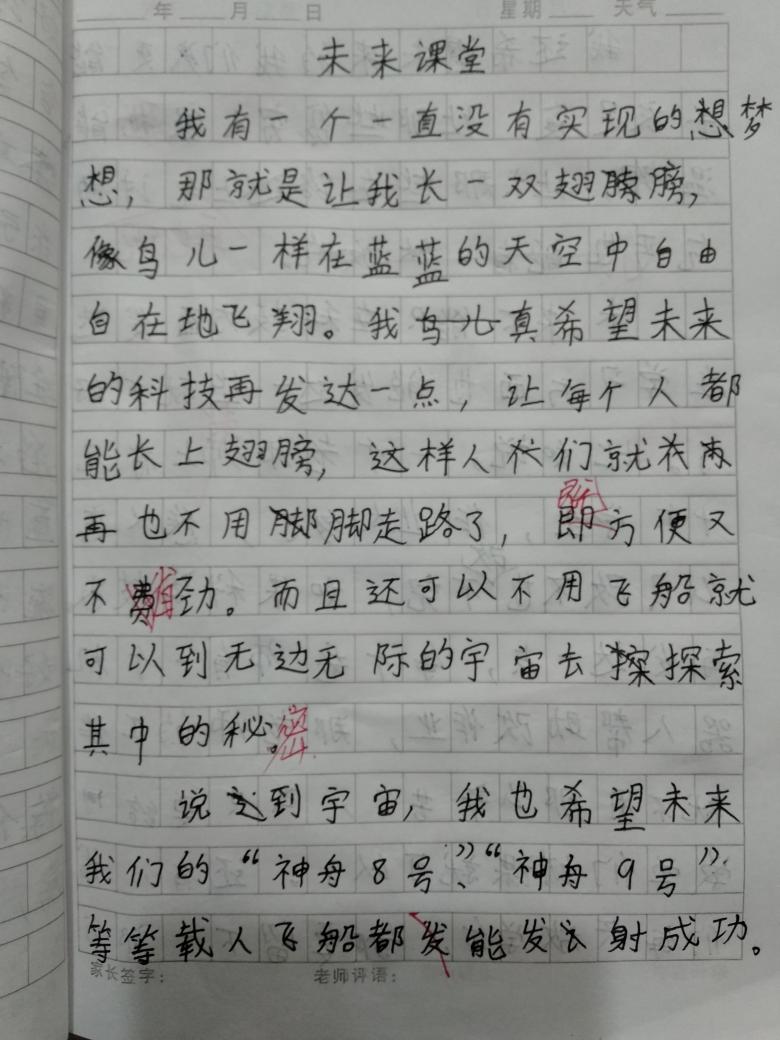 年 月 日 星期 天气
未来课堂
我有一个一直没有实现的想梦
想，那就是让我长一双翅膀，
像鸟儿一样在蓝蓝的天空中自由
自在地飞翔。我鸟儿真希望未来
的科技再发达一点，让每个人都
能长上翅膀，这样人们就
再也不用脚脚走路了，即方便又
不费劲。而且还可以不用飞船就
可以到无边无际的宇宙去探索
其中的秘密。
说到宇宙，我也希望未来
我们的“神舟8号”、“神舟9号”
等等载人飞船都发能发射成功。
家长签字： 老师评语：